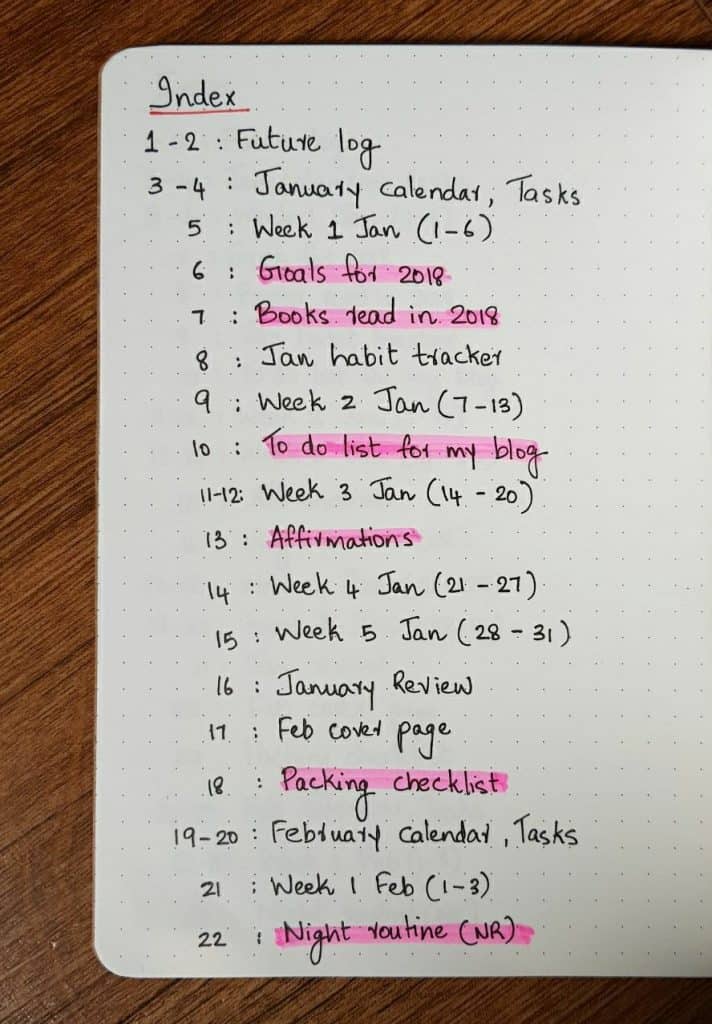 Index
1 - 2 : Future log
3 - 4 : January calendar, Tasks
5 : Week 1 Jan (1-6)
6 : Goals for 2018
7 : Books read in 2018
8 : Jan habit tracker
9 : Week 2 Jan (7-13)
10 : To do list for my blog
11-12: Week 3 Jan (14 - 20)
13 : Affirmations
14 : Week 4 Jan (21 - 27)
15 : Week 5 Jan (28 - 31)
16 : January Review
17 : Feb cover page
18 : Packing checklist
19-20 : February calendar, Tasks
21 : Week 1 Feb (1-3)
22 : Night routine (NR)